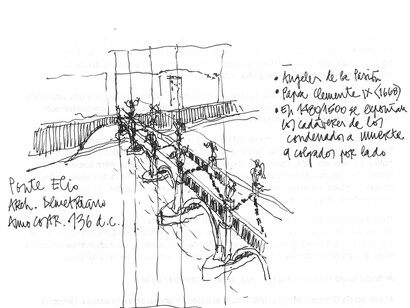 • Angeles de la Pasión
• Papa Clemente IX (1668)
• En 1480/1600 se exponían
los cadáveres de los
condenados a muerte
colgados por lado
Ponte Elio
Arch. Demetriano
Anno 136 d.C.